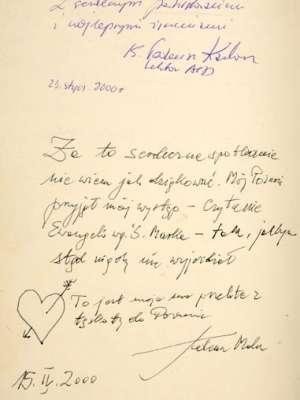 Z serdecznym
i najlepszymi życzeniami
Ks. Tadeusz
23. stycz. 2000 r.
Za to serdeczne spotkanie
nie wiem jak dziękować. Mój Poznań
przyjął mój występ - Czytanie
Ewangelii wg Ś. Marka - tak, jakbym
stąd nigdy nie wyjeżdżał
To jest moje
tęsknoty do Poznania
15. IV. 2000